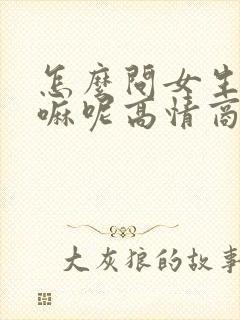 怎麼問女生
嘛呢高情商
大灰狼的故事